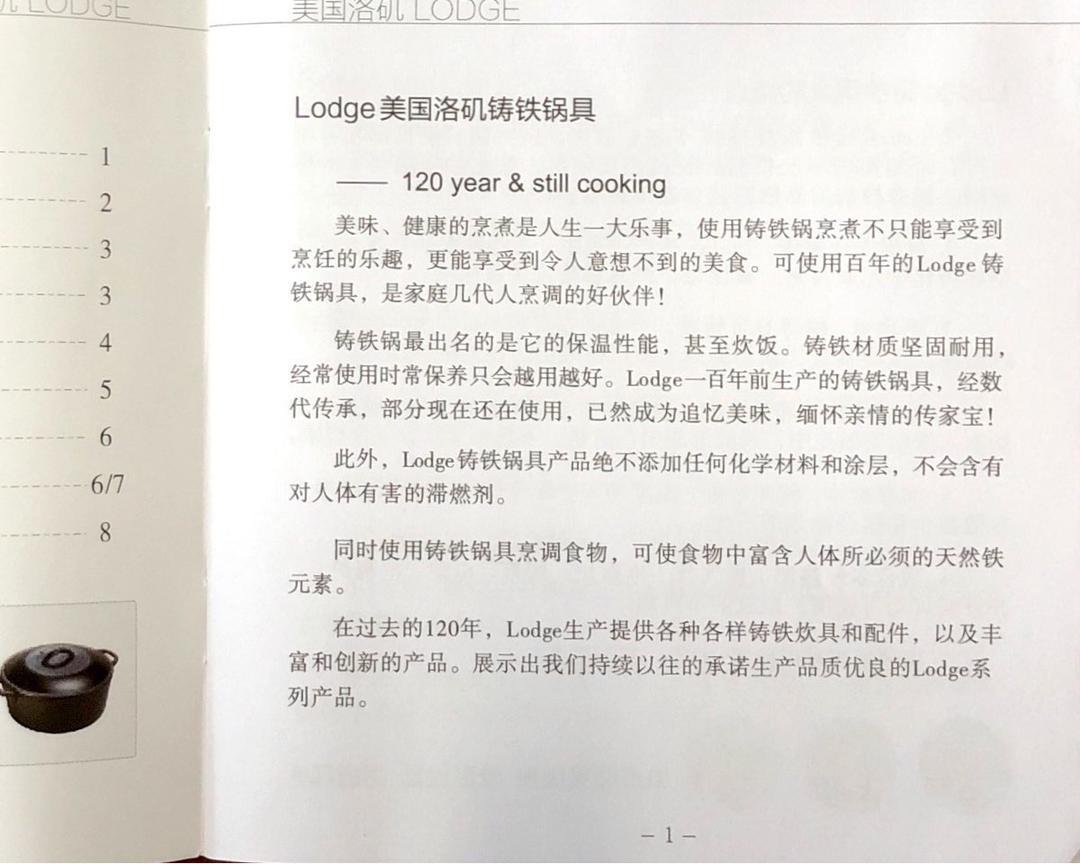 矶 LODGE
1
2
3
3
4
5
6
6/7
8
美国洛矶 LODGE
Lodge美国洛矶铸铁锅具
—— 120 year & still cooking
美味、健康的烹煮是人生一大乐事，使用铸铁锅烹煮不只能享受到
烹饪的乐趣，更能享受到令人意想不到的美食。可使用百年的Lodge 铸
铁锅具，是家庭几代人烹调的好伙伴！
铸铁锅最出名的是它的保温性能，甚至炊饭。铸铁材质坚固耐用，
经常使用时常保养只会越用越好。Lodge一百年前生产的铸铁锅具，经数
代传承，部分现在还在使用，已然成为追忆美味，缅怀亲情的传家宝！
此外，Lodge铸铁锅具产品绝不添加任何化学材料和涂层，不会含有
对人体有害的滞燃剂。
同时使用铸铁锅具烹调食物，可使食物中富含人体所必须的天然铁
元素。
在过去的120年，Lodge生产提供各种各样铸铁炊具和配件，以及丰
富和创新的产品。展示出我们持续以往的承诺生产品质优良的Lodge系
列产品。
– 1 –